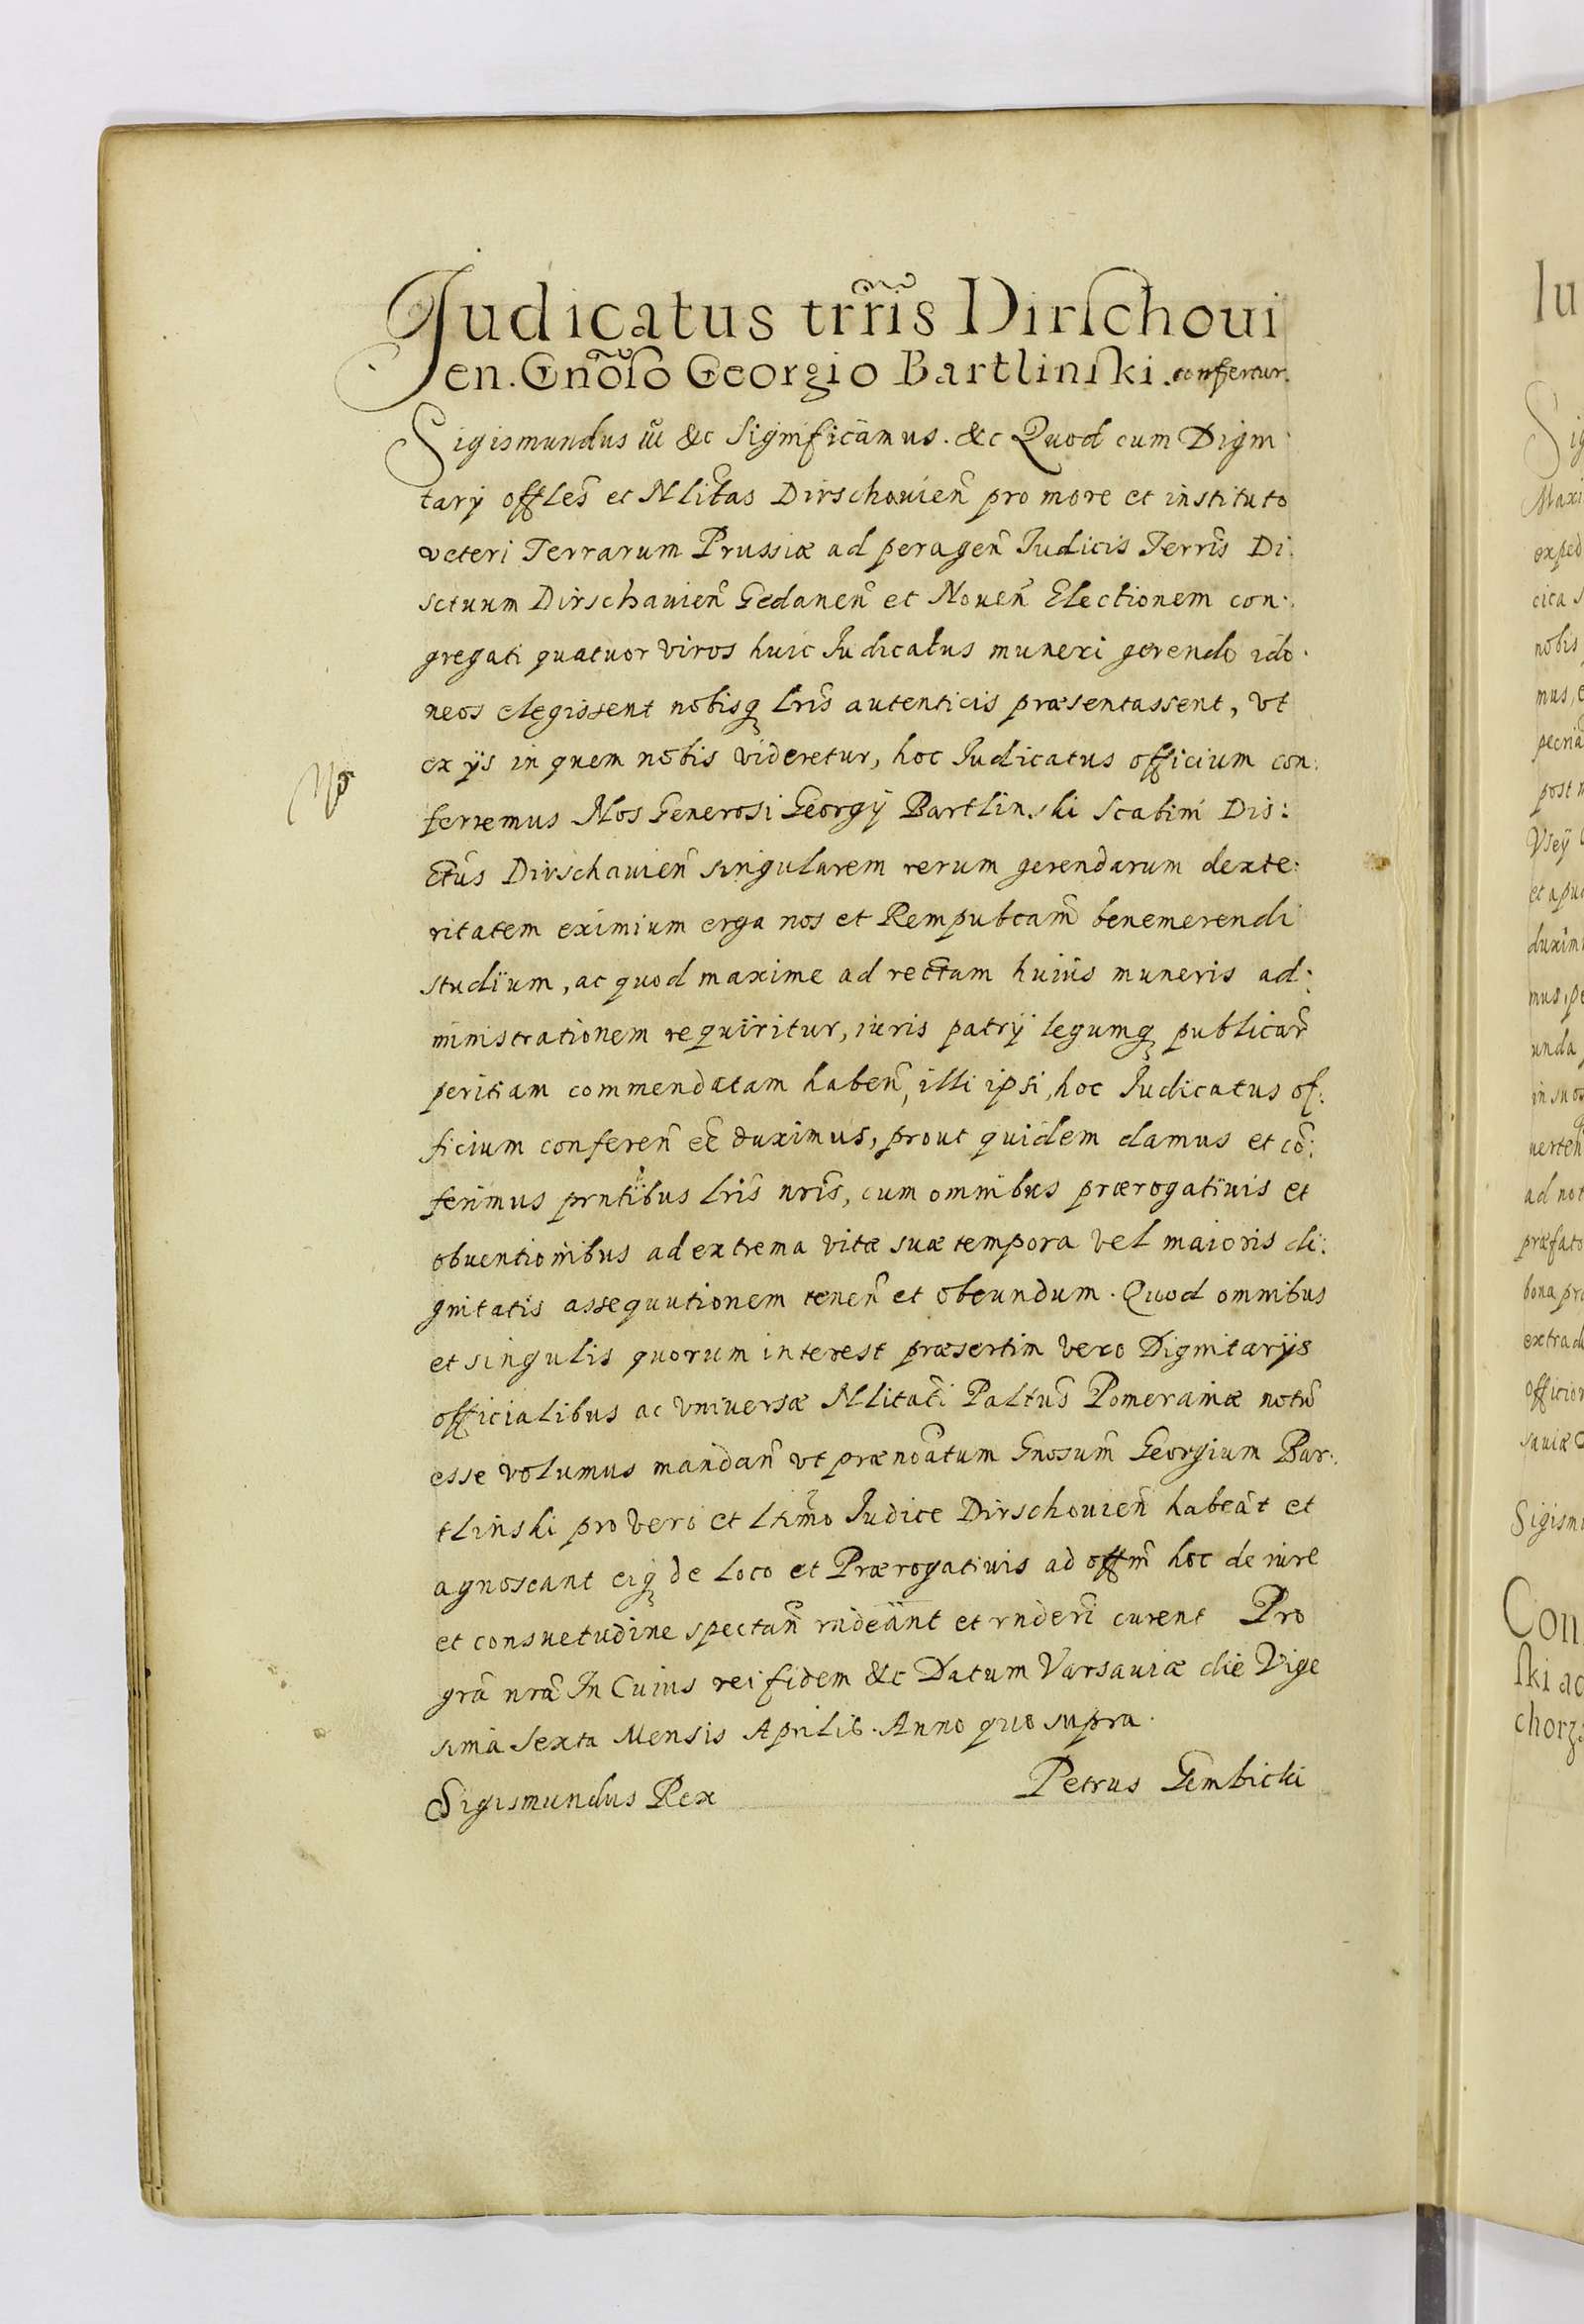 Judicatus trr̃is Dirschoui
en. Gnõso Georgio Bartlinski. confertur.
Sigismundus iii &c Significamus. &c Quod cum Digni
tarÿ offles̃ et Nlitãs Dirschouien̄ pro more et instituto
veteri Terrarum Prussiæ ad peragen̄ Iudicis Terrĩs Di:
sctuum Dirschauien̄ Gedanen̄ et Nouen̄ Electionem con:
gregati quatuor viros huic Judicatus muneri gerendo ido:
neos elegissent nobisq̨ lrĩs autenticis præsentassent, vt
ex ÿs in quem nobis videretur, hoc Judicatus officium con:
ferremus Nos Generosi Georgÿ Bartlinski Scabini Dis:
ctũs Dirschauien̄ singularem rerum gerendarum dexte:
ritatem eximium erga nos et Rempubcam̃ benemerendi
studium, ac quod maxime ad rectam huius muneris ad:
ministrationem requiritur, iuris patrÿ legumq̨ publicar̃
peritiam commendatam haben̄, illi ipsi, hoc Judicatus of:
ficium conferen̄ eẽ duximus, prout quidem damus et cõ:
ferimus prntĩbus lrĩs nrĩs, cum omnibus prærogatiuis et
obuentionibus ad extrema vitæ suæ tempora vel maioris di:
gnitatis assequutionem tenen̄ et obeundum. Quod omnibus
et singulis quorum interest præsertim vero Dignitarÿs
officialibus ac vniuersæ Nlitatĩ Paltus̃ Pomeraniæ notũ
esse volumus mandan̄ vt prænoãtum Gnosum̃ Georgium Bar:
tlinski pro vero et ltimõ Judice Dirschouien̄ habeãt et
agnoscant eiq̨ de loco et Prærogatiuis ad offm̃ hoc de iure
et consuetudine spectan̄ rñdeant et rnderĩ curent Pro
grã nrã In Cuius rei fidem &c Datum Varsauiæ die Vige
sima Sexta Mensis Aprilis. Anno quo supra.
Sigismundus Rex Petrus Gembicki